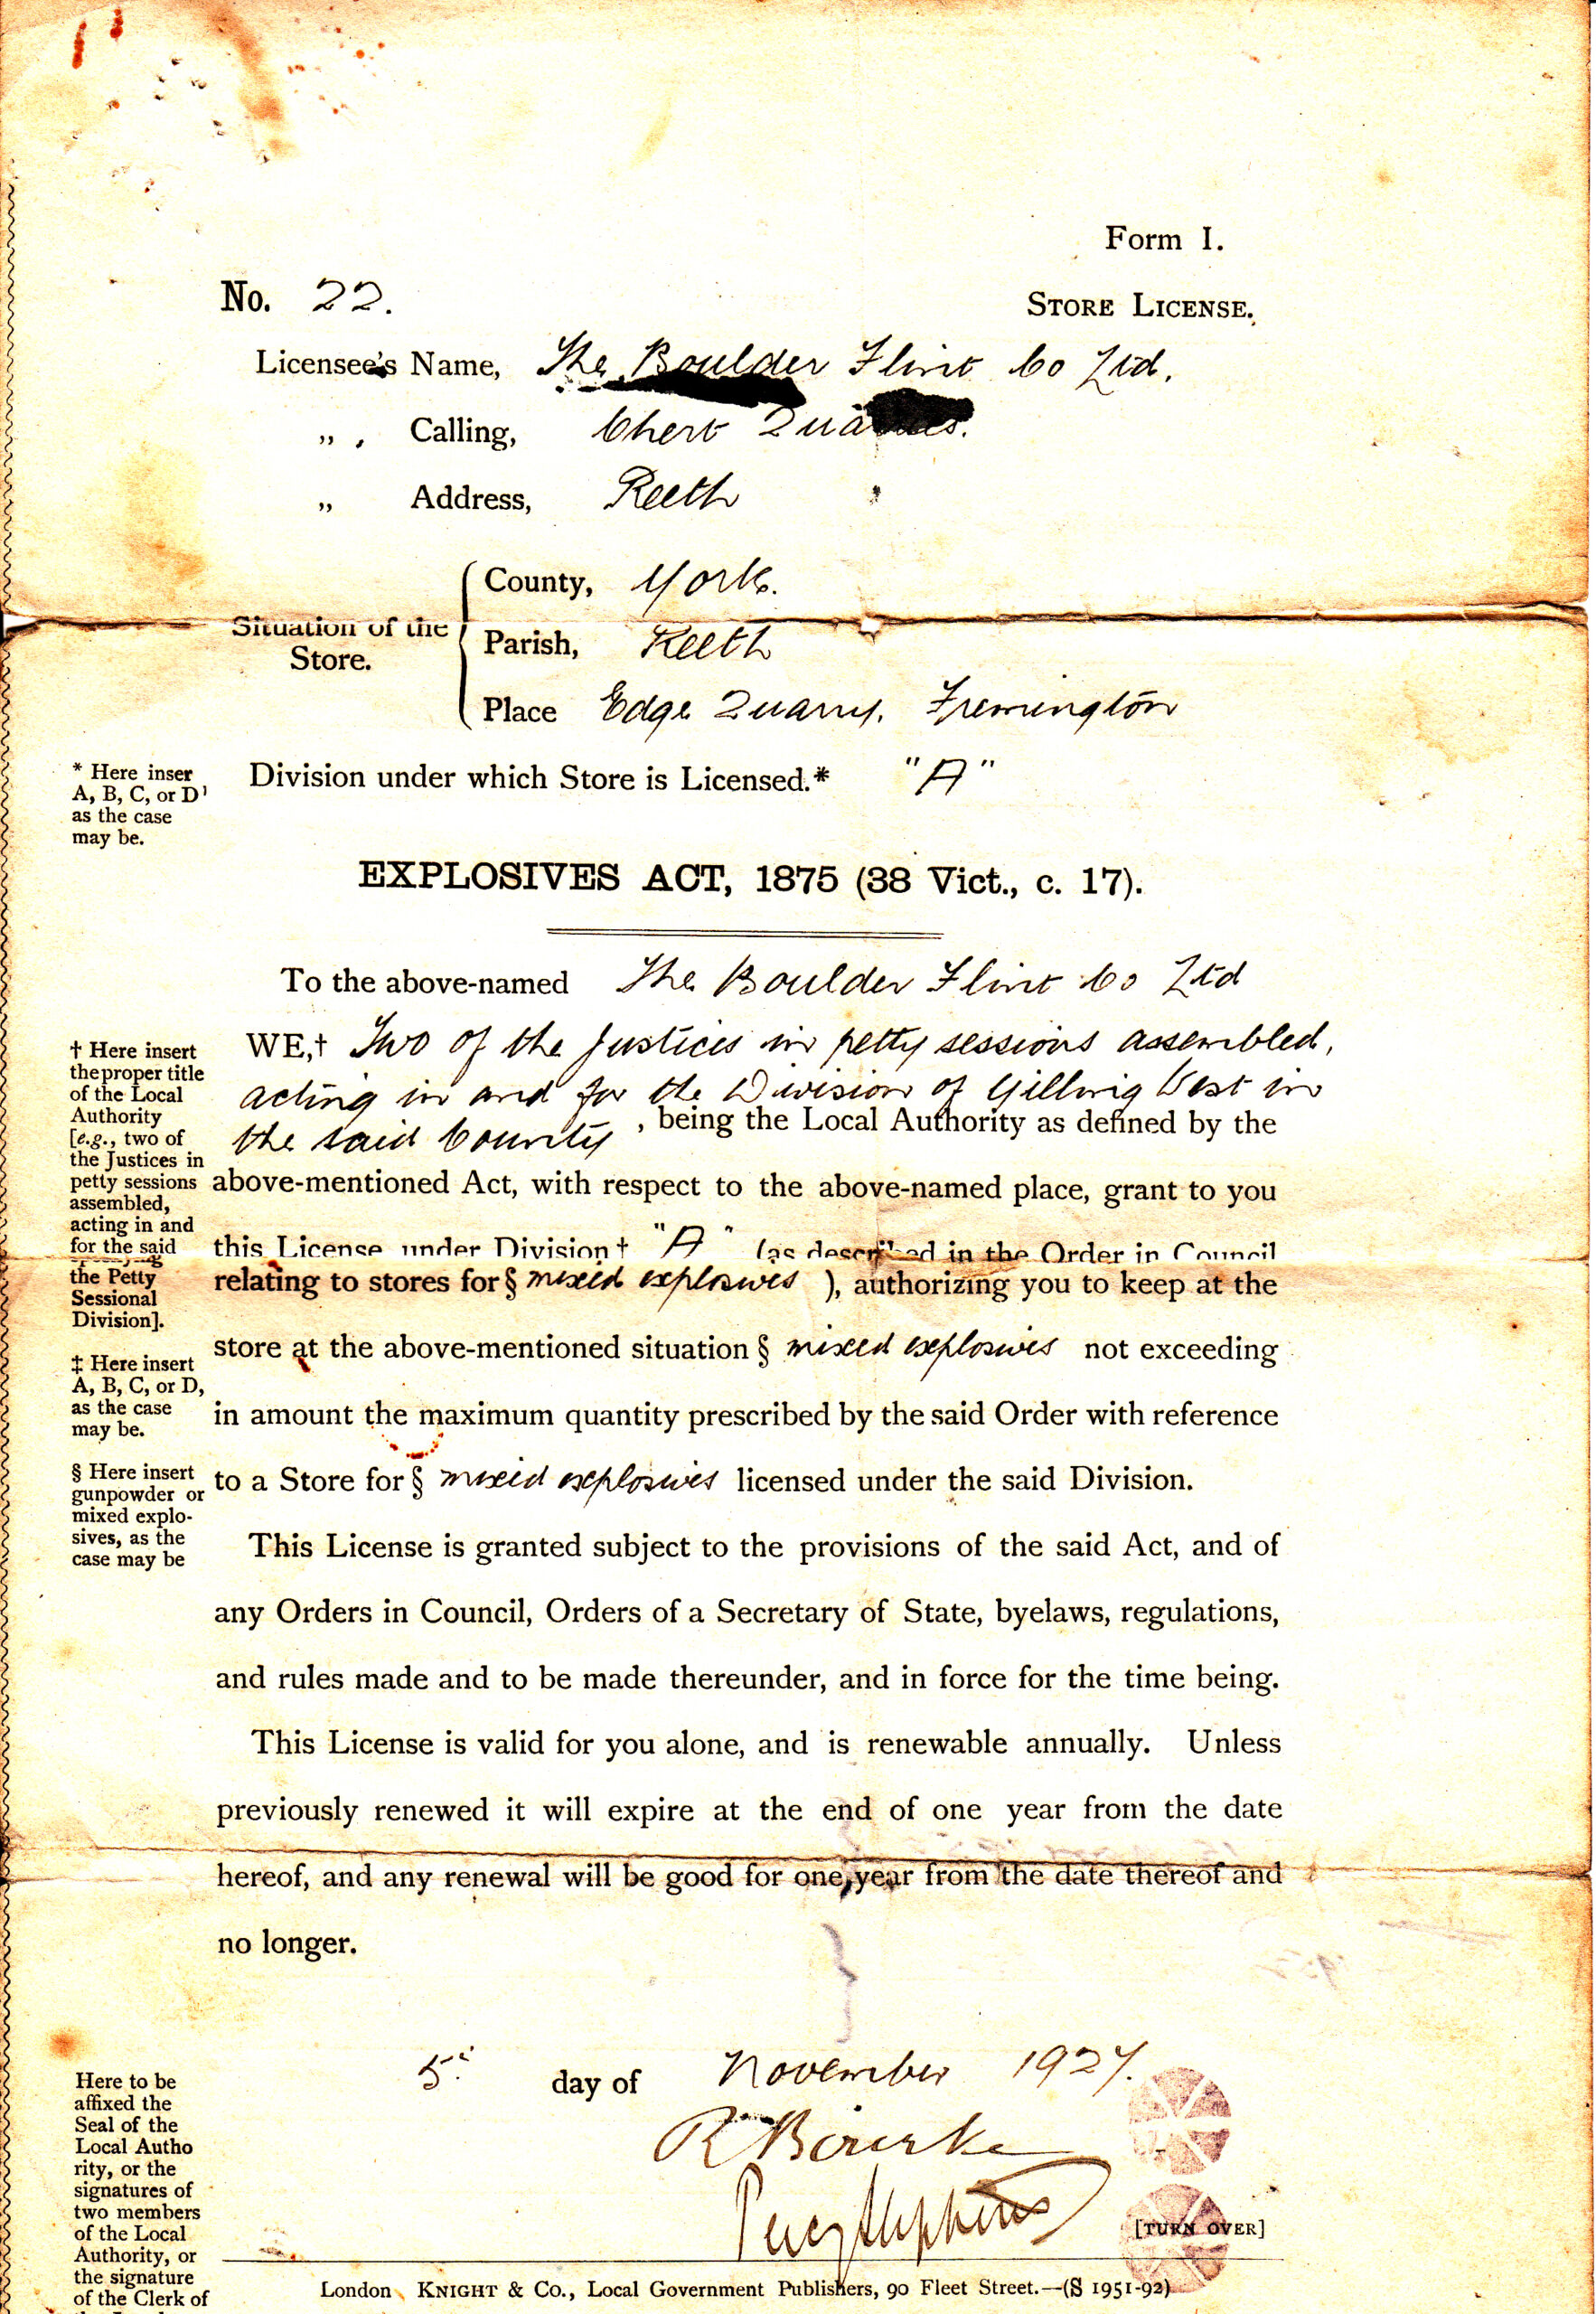 Form I.
No. 22.
STORE LICENSE.
Licensee's Name, The Boulder Flint Co Ltd.
„ Calling, Chert
„ Address, Reeth
Situation of the Store.
County, York.
Parish, Reeth
Place Edge Quarry, Fremington
* Here inser
A, B, C, or D'
as the case
may be.
Division under which Store is Licensed.* "A"
EXPLOSIVES ACT, 1875 (38 Vict., c. 17).
To the above-named The Boulder Flint Co Ltd
† Here insert
the proper title
of the Local
Authority
[e.g., two of
the Justices in
petty sessions
assembled,
acting in and
for the said
the Petty
Sessional
Division].
WE,† Two of the Justices in petty sessions assembled,
acting in and for the Division of Gilling West in
the said County, being the Local Authority as defined by the
above-mentioned Act, with respect to the above-named place, grant to you
this License under Division † "A" (as described in the Order in Council
relating to stores for § mixed explosives ), authorizing you to keep at the
store at the above-mentioned situation § mixed explosives not exceeding
in amount the maximum quantity prescribed by the said Order with reference
to a Store for § mixed explosives licensed under the said Division.
‡ Here insert
A, B, C, or D,
as the case
may be.
§ Here insert
gunpowder or
mixed explo-
sives, as the
case may be
This License is granted subject to the provisions of the said Act, and of
any Orders in Council, Orders of a Secretary of State, byelaws, regulations,
and rules made and to be made thereunder, and in force for the time being.
This License is valid for you alone, and is renewable annually. Unless
previously renewed it will expire at the end of one year from the date
hereof, and any renewal will be good for one year from the date thereof and
no longer.
5 day of November 1927.
R Bourke
Here to be
affixed the
Seal of the
Local Autho
rity, or the
signatures of
two members
of the Local
Authority, or
the signature
of the Clerk of
[TURN OVER]
London KNIGHT & CO., Local Government Publishers, 90 Fleet Street.—(S 1951-92)